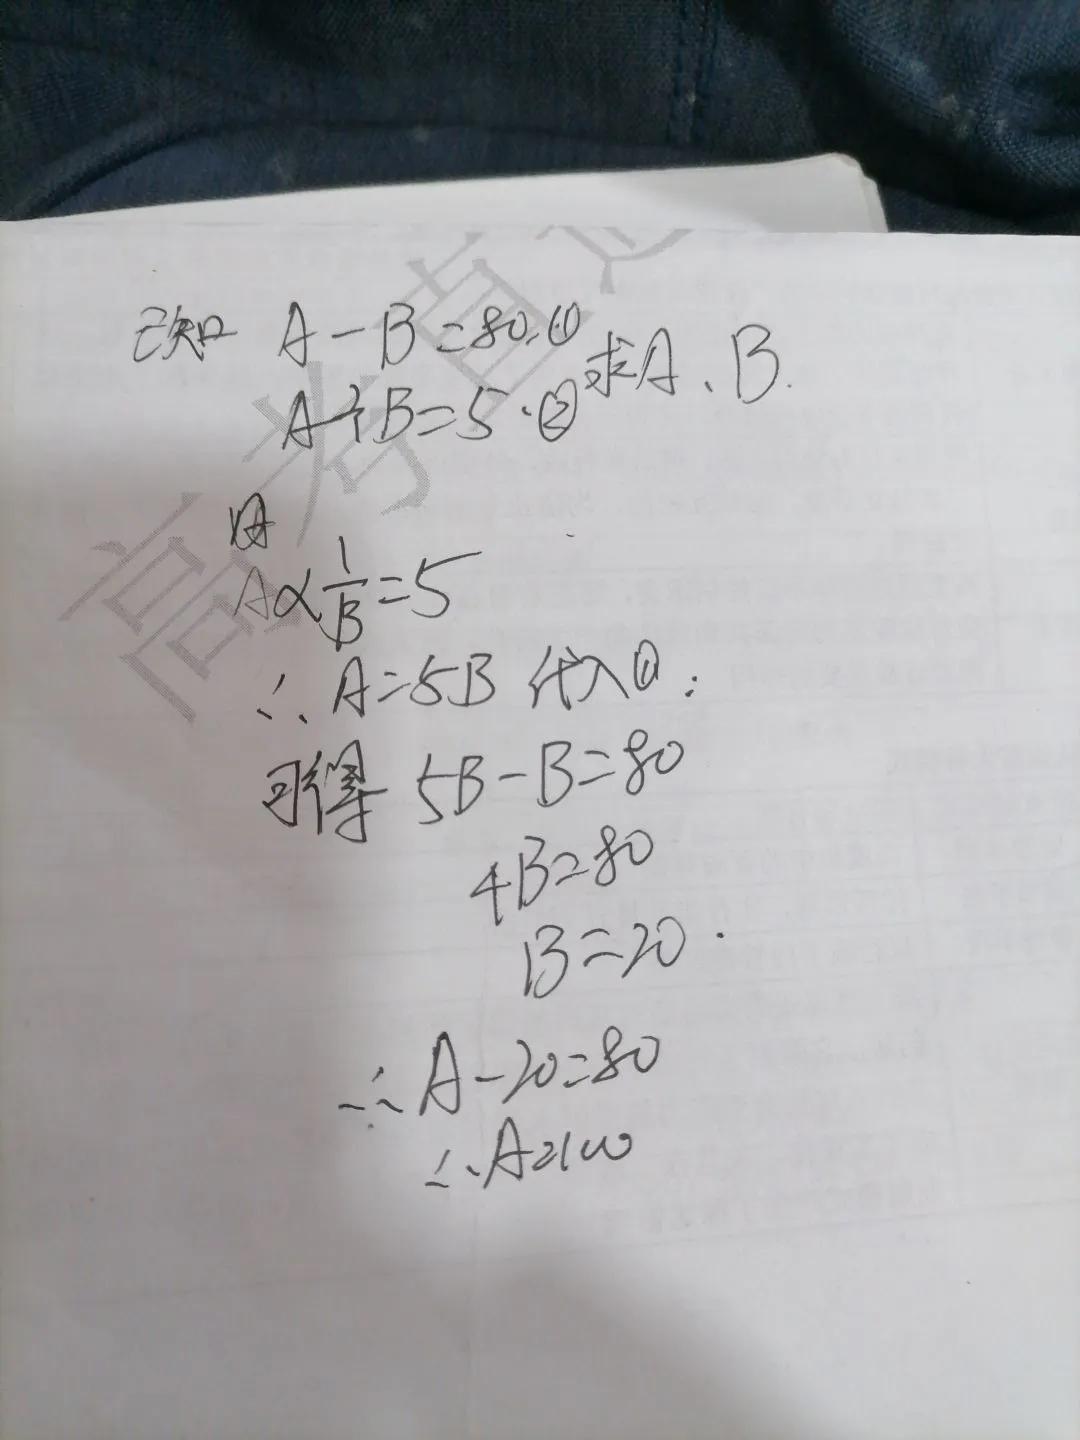 已知 A-B=80.①
A÷B=5.② 求A、B.
由
A×1/B=5
∴A=5B 代入①:
可得 5B-B=80
4B=80
B=20.
∴A-20=80
∴A=100
高考直通